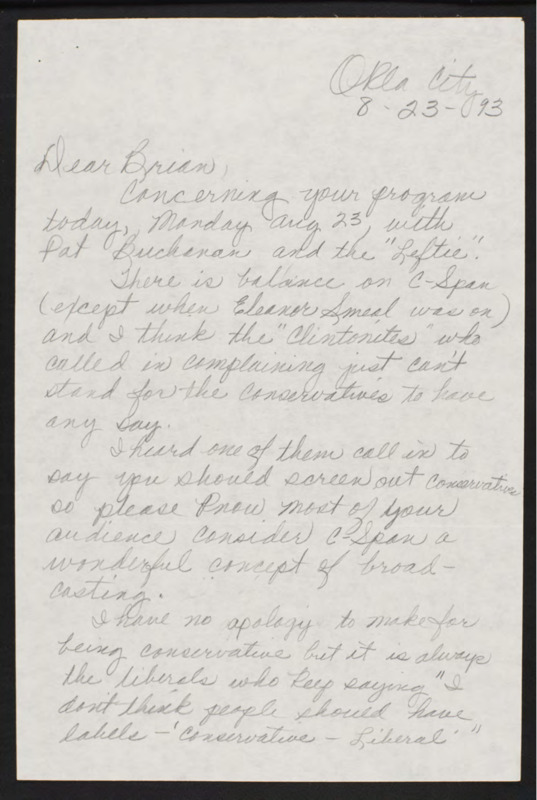 Okla City
8-23-93
Dear Brian,
Concerning your program
today, Monday Aug 23, with
Pat Buchanan and the "Leftie".
There is balance on C-Span
(except when Eleanor Smeal was on)
and I think the "Clintonites" who
called in complaining just can't
stand for the conservatives to have
any say.
I heard one of them call in to
say you should screen out conservatives
so please know most of your
audience consider C-Span a
wonderful concept of broad-
casting.
I have no apology to make for
being conservative but it is always
the liberals who keep saying "I
don't think people should have
labels - 'conservative - Liberal' "